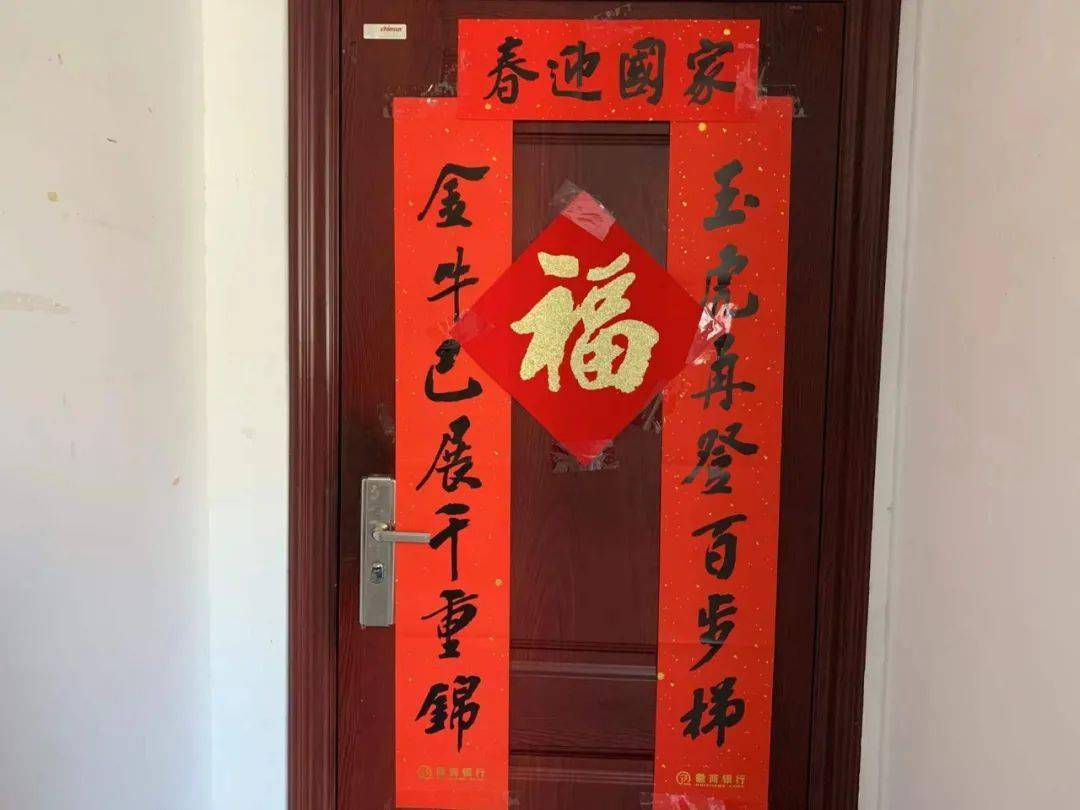 chinsun
春迎國家
金牛已展千重錦
福
玉虎再登百步梯
徽商银行
徽商银行